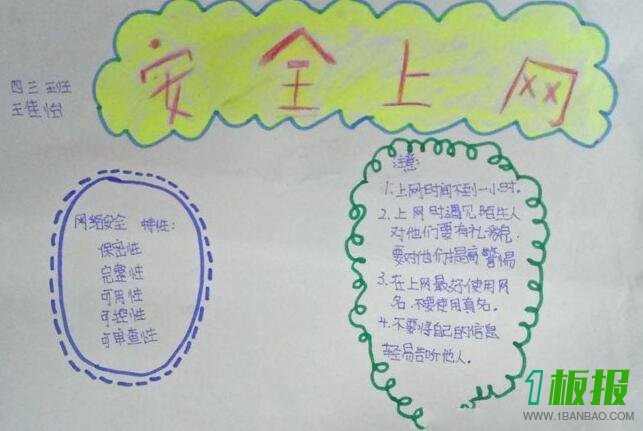 安全上网
四三班
王佳怡
网络安全 特性:
保密性
完整性
可用性
可控性
可审查性
注意:
1.上网时间不到一小时。
2.上网时遇见陌生人
对他们要有礼貌
要对他们提高警惕
3.在上网最好使用网
名.不要使用真名.
4.不要将自己的信息
轻易告听他人.
1板报
WWW.1BANBAO.COM